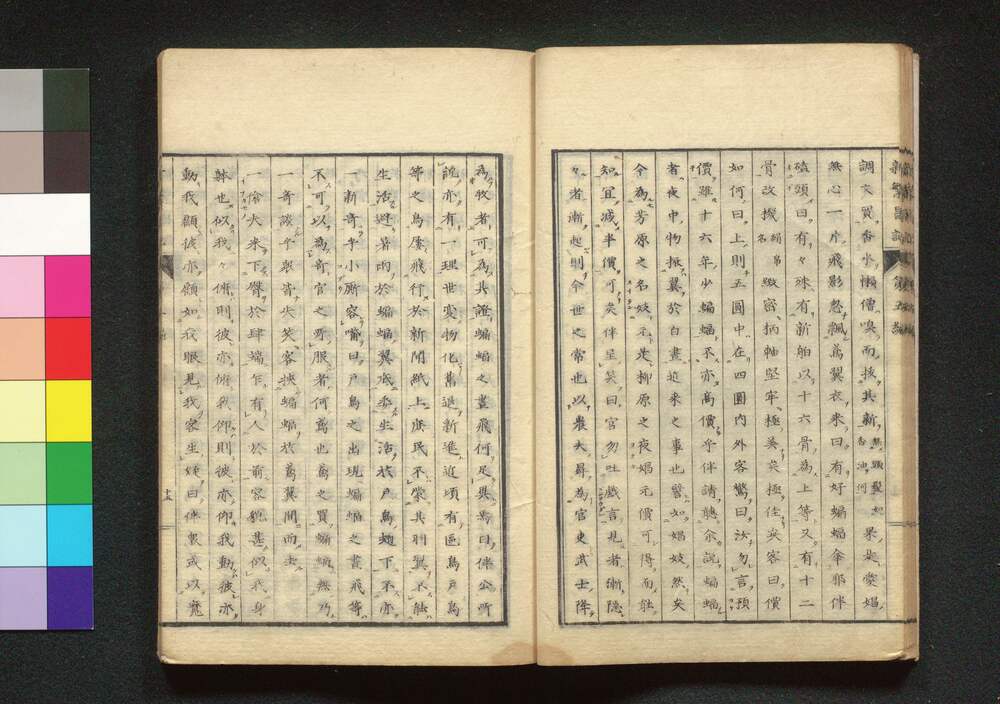 調文買香水懶僧嗅而挾其新無頭髮恕香油何果是突媢
無心一片飛影忽飄爲翼衣来曰有好蝙蝠傘邪伴
磕頭曰有々殊有新舶以十六骨為上等又有十二
骨改機絹帛名緻密柄軸堅牢極美矣極佳矣容曰價
如何曰上則五圓中在四圓内外容驚曰汰勿言預
價雖十六年少蝙蝠不亦高價乎伴請聴余説蝙蝠
者夜中物振翼於白晝近来之事也譬如娼妓然矣
今為芳原之名妓元是柳原之夜娼元價可得而
知宜减半價可矣伴呈笑曰官勿吐戯言見者漸隠
々者漸起則今世之常也以農夫昇為官吏武士降
為牧者可為其證蝙蝠之晝飛何足異焉曰依公所
説亦有一理世変物化舊退新進近頃有區鳥戸鳥
等之鳥屢飛行於新聞紙上庶民不蒙其羽翼不能
生活避暑的於蝙蝠翼底生活於戸鳥翅下不亦
一新奇乎小厮容嘴曰戸鳥之出現蝙蝠之晝飛等
不可以為奇官之所服者何鳶也鳶之買蝙蝠無乃
一奇談乎衆皆失笑客挾蝙蝠於鳶翼間而去
一徐歩来下臀於肆端乍有人於前容貌甚似我身
躰也似我々俯則彼亦俯我仰則彼亦仰我動彼亦
動我顧彼亦顧如我眼見我家生疑曰伴製或以魔